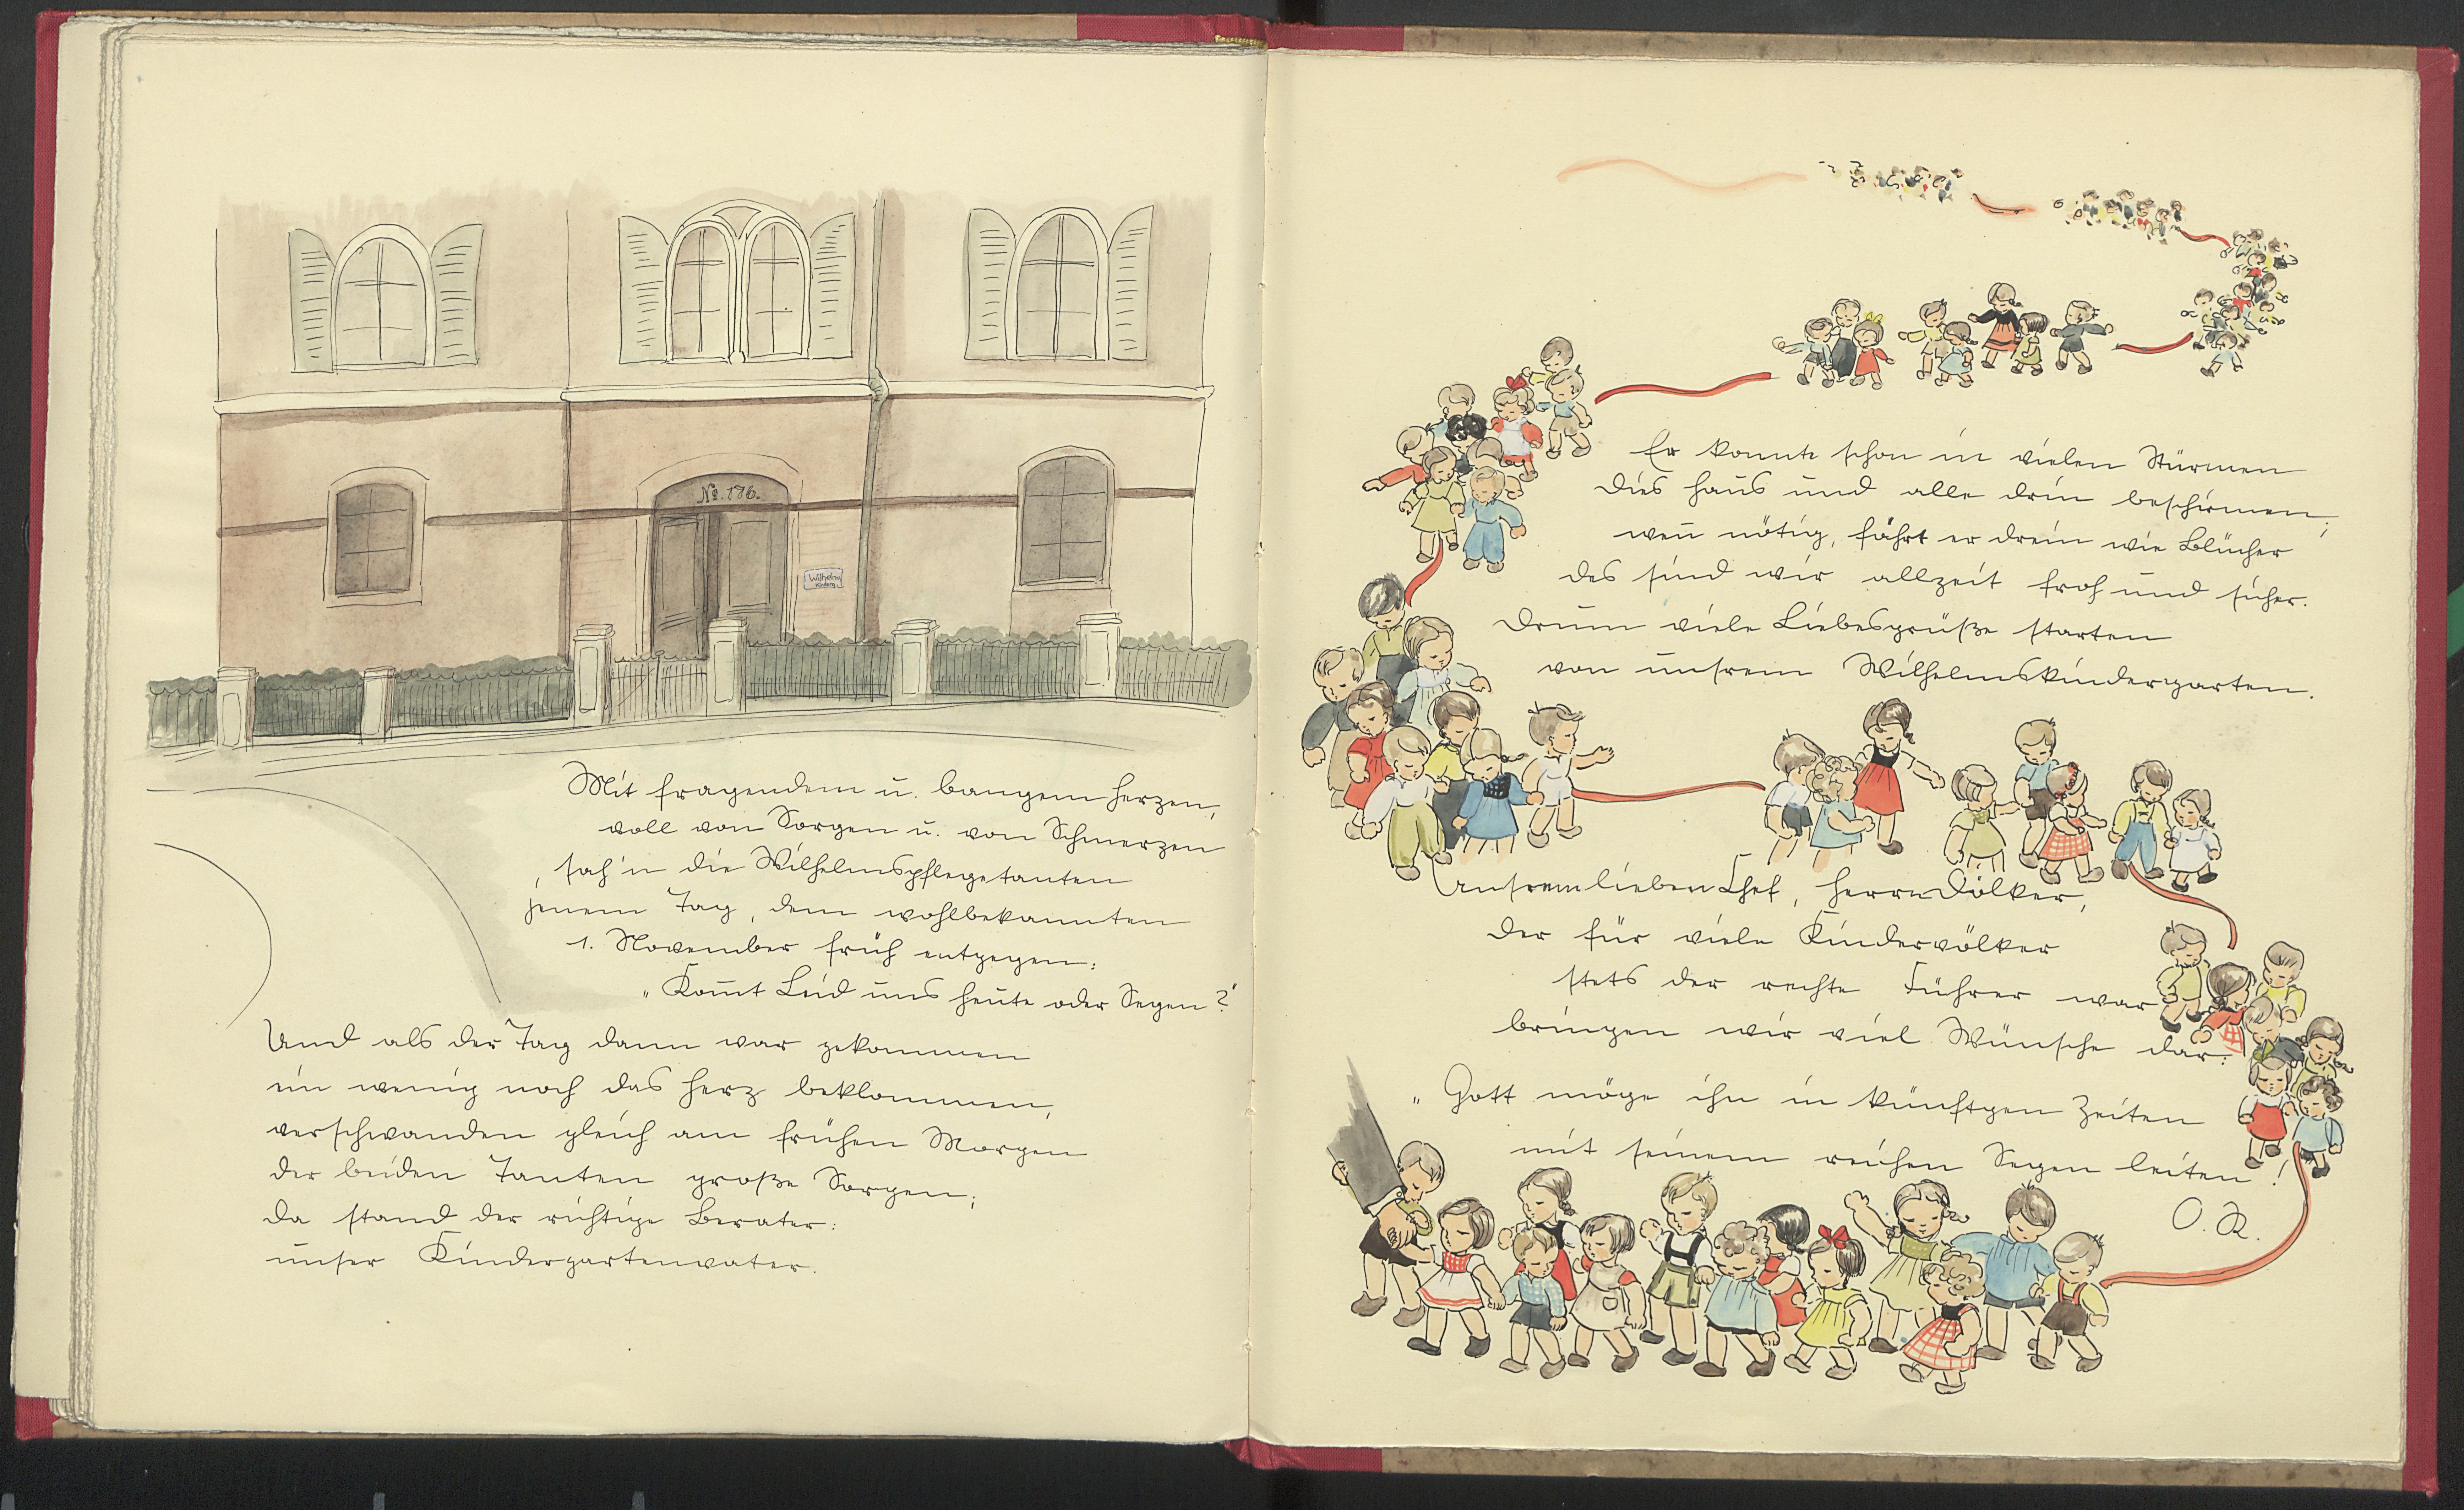 No. 176.
Wilhelms
Kinderg.
Mit fragendem u. bangem Herzen,
voll von Sorgen u. von Schmerzen
sah'n die Wilhelmspflegetanten
jenem Tag, dem wohlbekannten
1. November früh entgegen:
„Kom̅t Leid uns heute oder Segen?"
Und als der Tag dann war gekommen
ein wenig noch das Herz beklommen,
verschwanden gleich am frühen Morgen
der beiden Tanten große Sorgen;
da stand der richtige Berater:
unser Kindergartenvater.
Er konnte schon in vielen Stürmen
dies Haus und alle drin beschirmen;
wen̅ nötig, fährt er drein wie Blücher
des sind wir allzeit froh und sicher.
Drum viele Liebesgrüße starten
von unsrem Wilhelmskindergarten.
Unsrem lieben Chef, Herrn Dölker,
der für viele Kindervölker
stets der rechte Führer war
bringen wir viel Wünsche dar:
„Gott möge ihn in künftgen Zeiten
mit seinem reichen Segen leiten!
O. K.